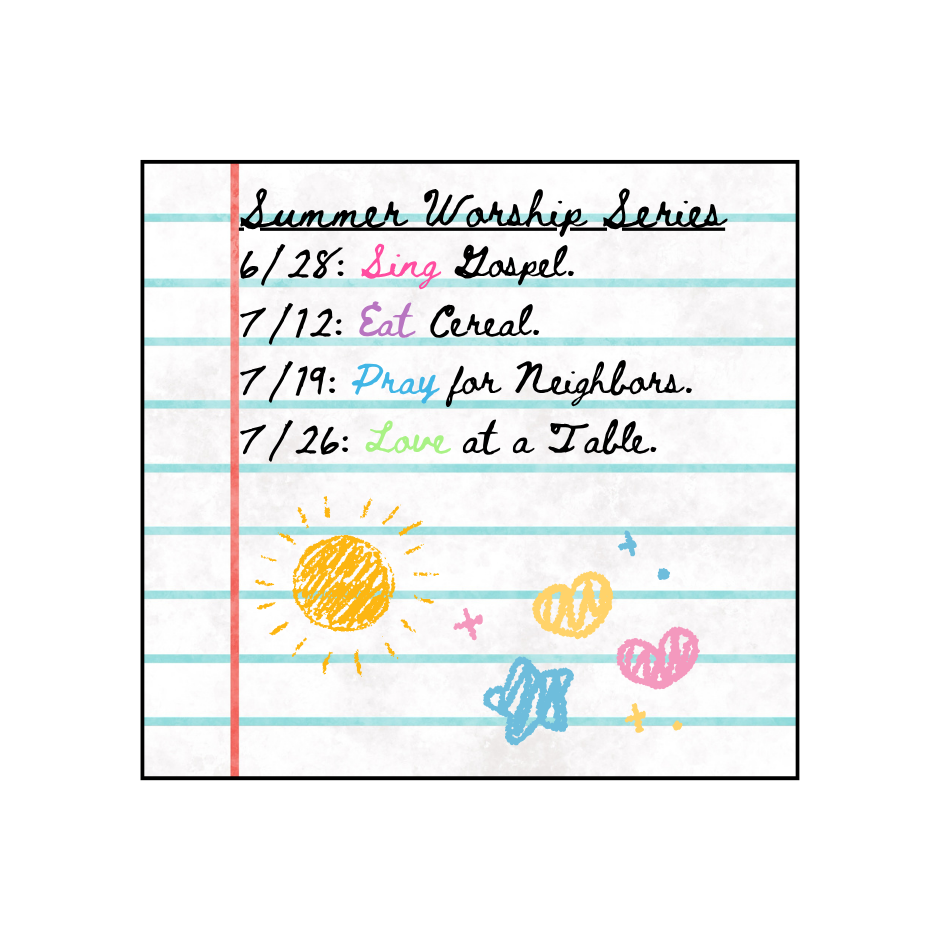 Summer Worship Series
6/28: Sing Gospel.
7/12: Eat Cereal.
7/19: Pray for Neighbors.
7/26: Love at a Table.